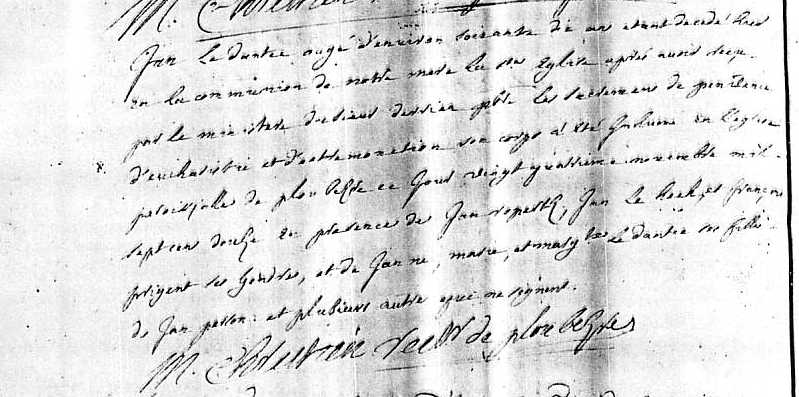 Jan le dantec agé d'environ soixante dix ans etant decedé hier
en la communion de notre mere la ste Eglise après avoir receu
par le ministere du sieur les sacremens de penitence
d'eucharistie et d'extremonction son corps a été Inhumé en l'eglise
paroissialle de ploubesre ce Jour vingt quatrieme novembre mil
sept cens douze en presence de Jan roparth, Jan le et françois
prigent ses Gendres, et de Janne, marie, et le dantec ses filles
de Jan person et plusieurs autre qui ne signent.
M. rectr de ploubesre